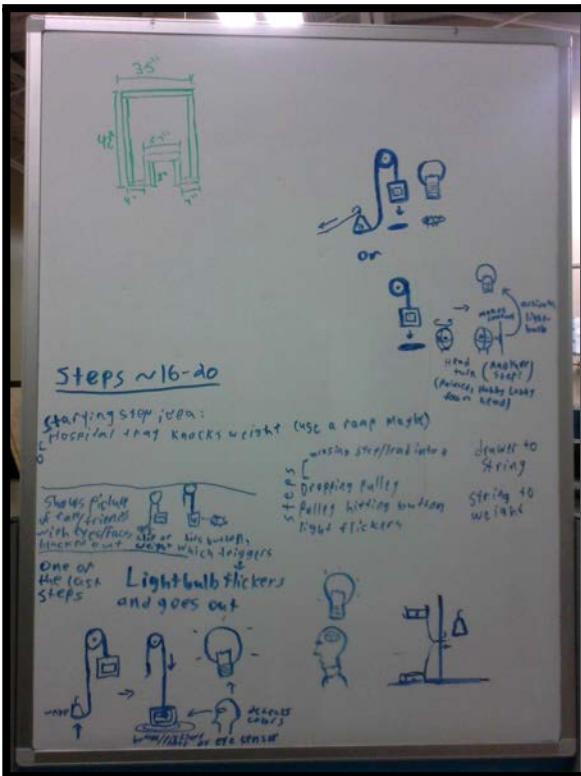 35"
42"
8"
4"
or
makes contact
activates
light-
bulb
Head
turn
(Another
step?)
(Pulled, Hobby Lobby
foam head)
Steps ~16-20
Starting step idea:
Hospital tray knocks weight (use a ramp maybe)
steps
missing step/lead into
Dropping pulley
Pulley hitting button
light flickers
drawer to
string
string to
weight
Shows picture
of fam/friends
with eyes/faces
blacked out
weight
hits button,
which triggers
One of
the last
steps
Lightbulb flickers
and goes out
or eye sensor
detects
colors